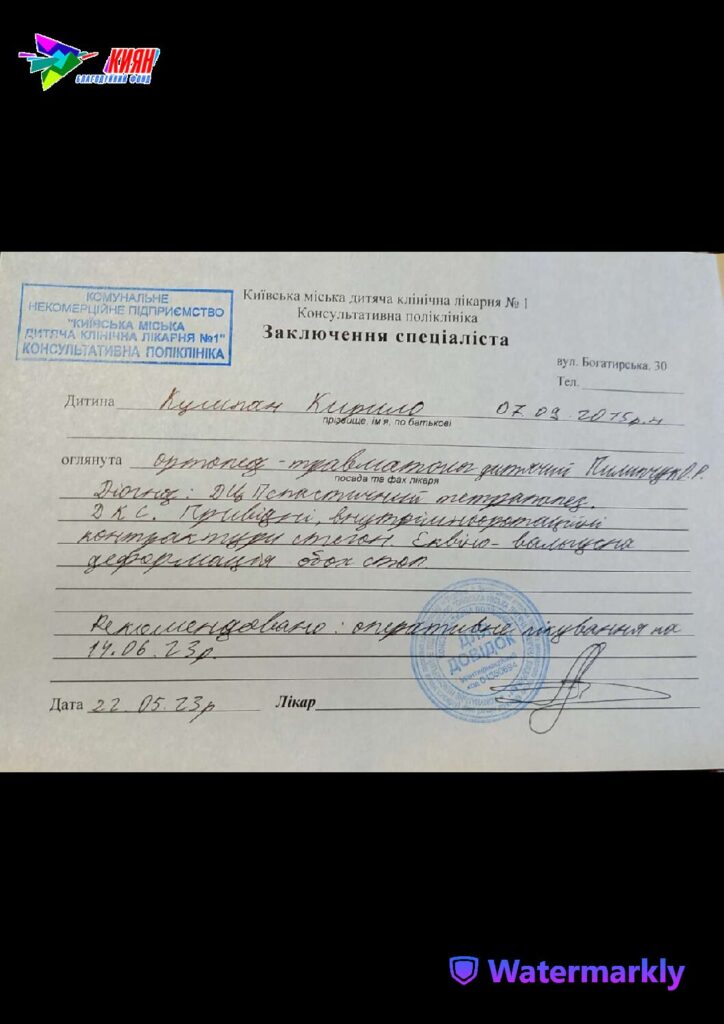 КИЯН
БЛАГОДІЙНИЙ ФОНД
КОМУНАЛЬНЕ
НЕКОМЕРЦІЙНЕ ПІДПРИЄМСТВО
"КИЇВСЬКА МІСЬКА
ДИТЯЧА КЛІНІЧНА ЛІКАРНЯ №1"
КОНСУЛЬТАТИВНА ПОЛІКЛІНІКА
Київська міська дитяча клінічна лікарня № 1
Консультативна поліклініка
Заключення спеціаліста
вул. Богатирська, 30
Тел.
Дитина Кирило 07.09.2015р.н
прізвище, ім'я, по батькові
оглянута ортопед-травматолог дитячий Пилипчук О.Р.
посада та фах лікаря
Діагноз: ДЦП спастичний
ДКС. Привідні, внутрішньоротаційні
контрактури стегон. Еквіно-вальгусна
деформація обох стоп
Рекомендовано: оперативне лікування на
14.06.23р.
ДЛЯ
ДОВІДОК
Дата 22.05.23р Лікар
Watermarkly